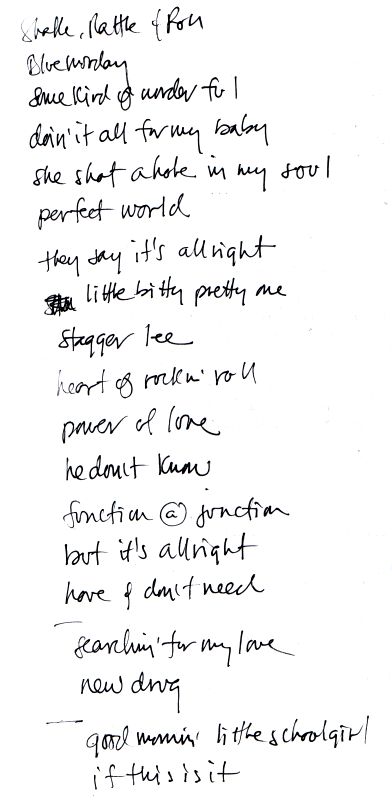 Shake, Rattle & Roll
Blue monday
some kind of wonderful
doin' it all for my baby
she shot a hole in my soul
perfect world
they say it's allright
little bitty pretty one
stagger lee
heart of rockn' roll
power of love
he don't know
function @ junction
but it's allright
have & don't need
searchin' for my love
new drug
good mornin' little schoolgirl
if this is it